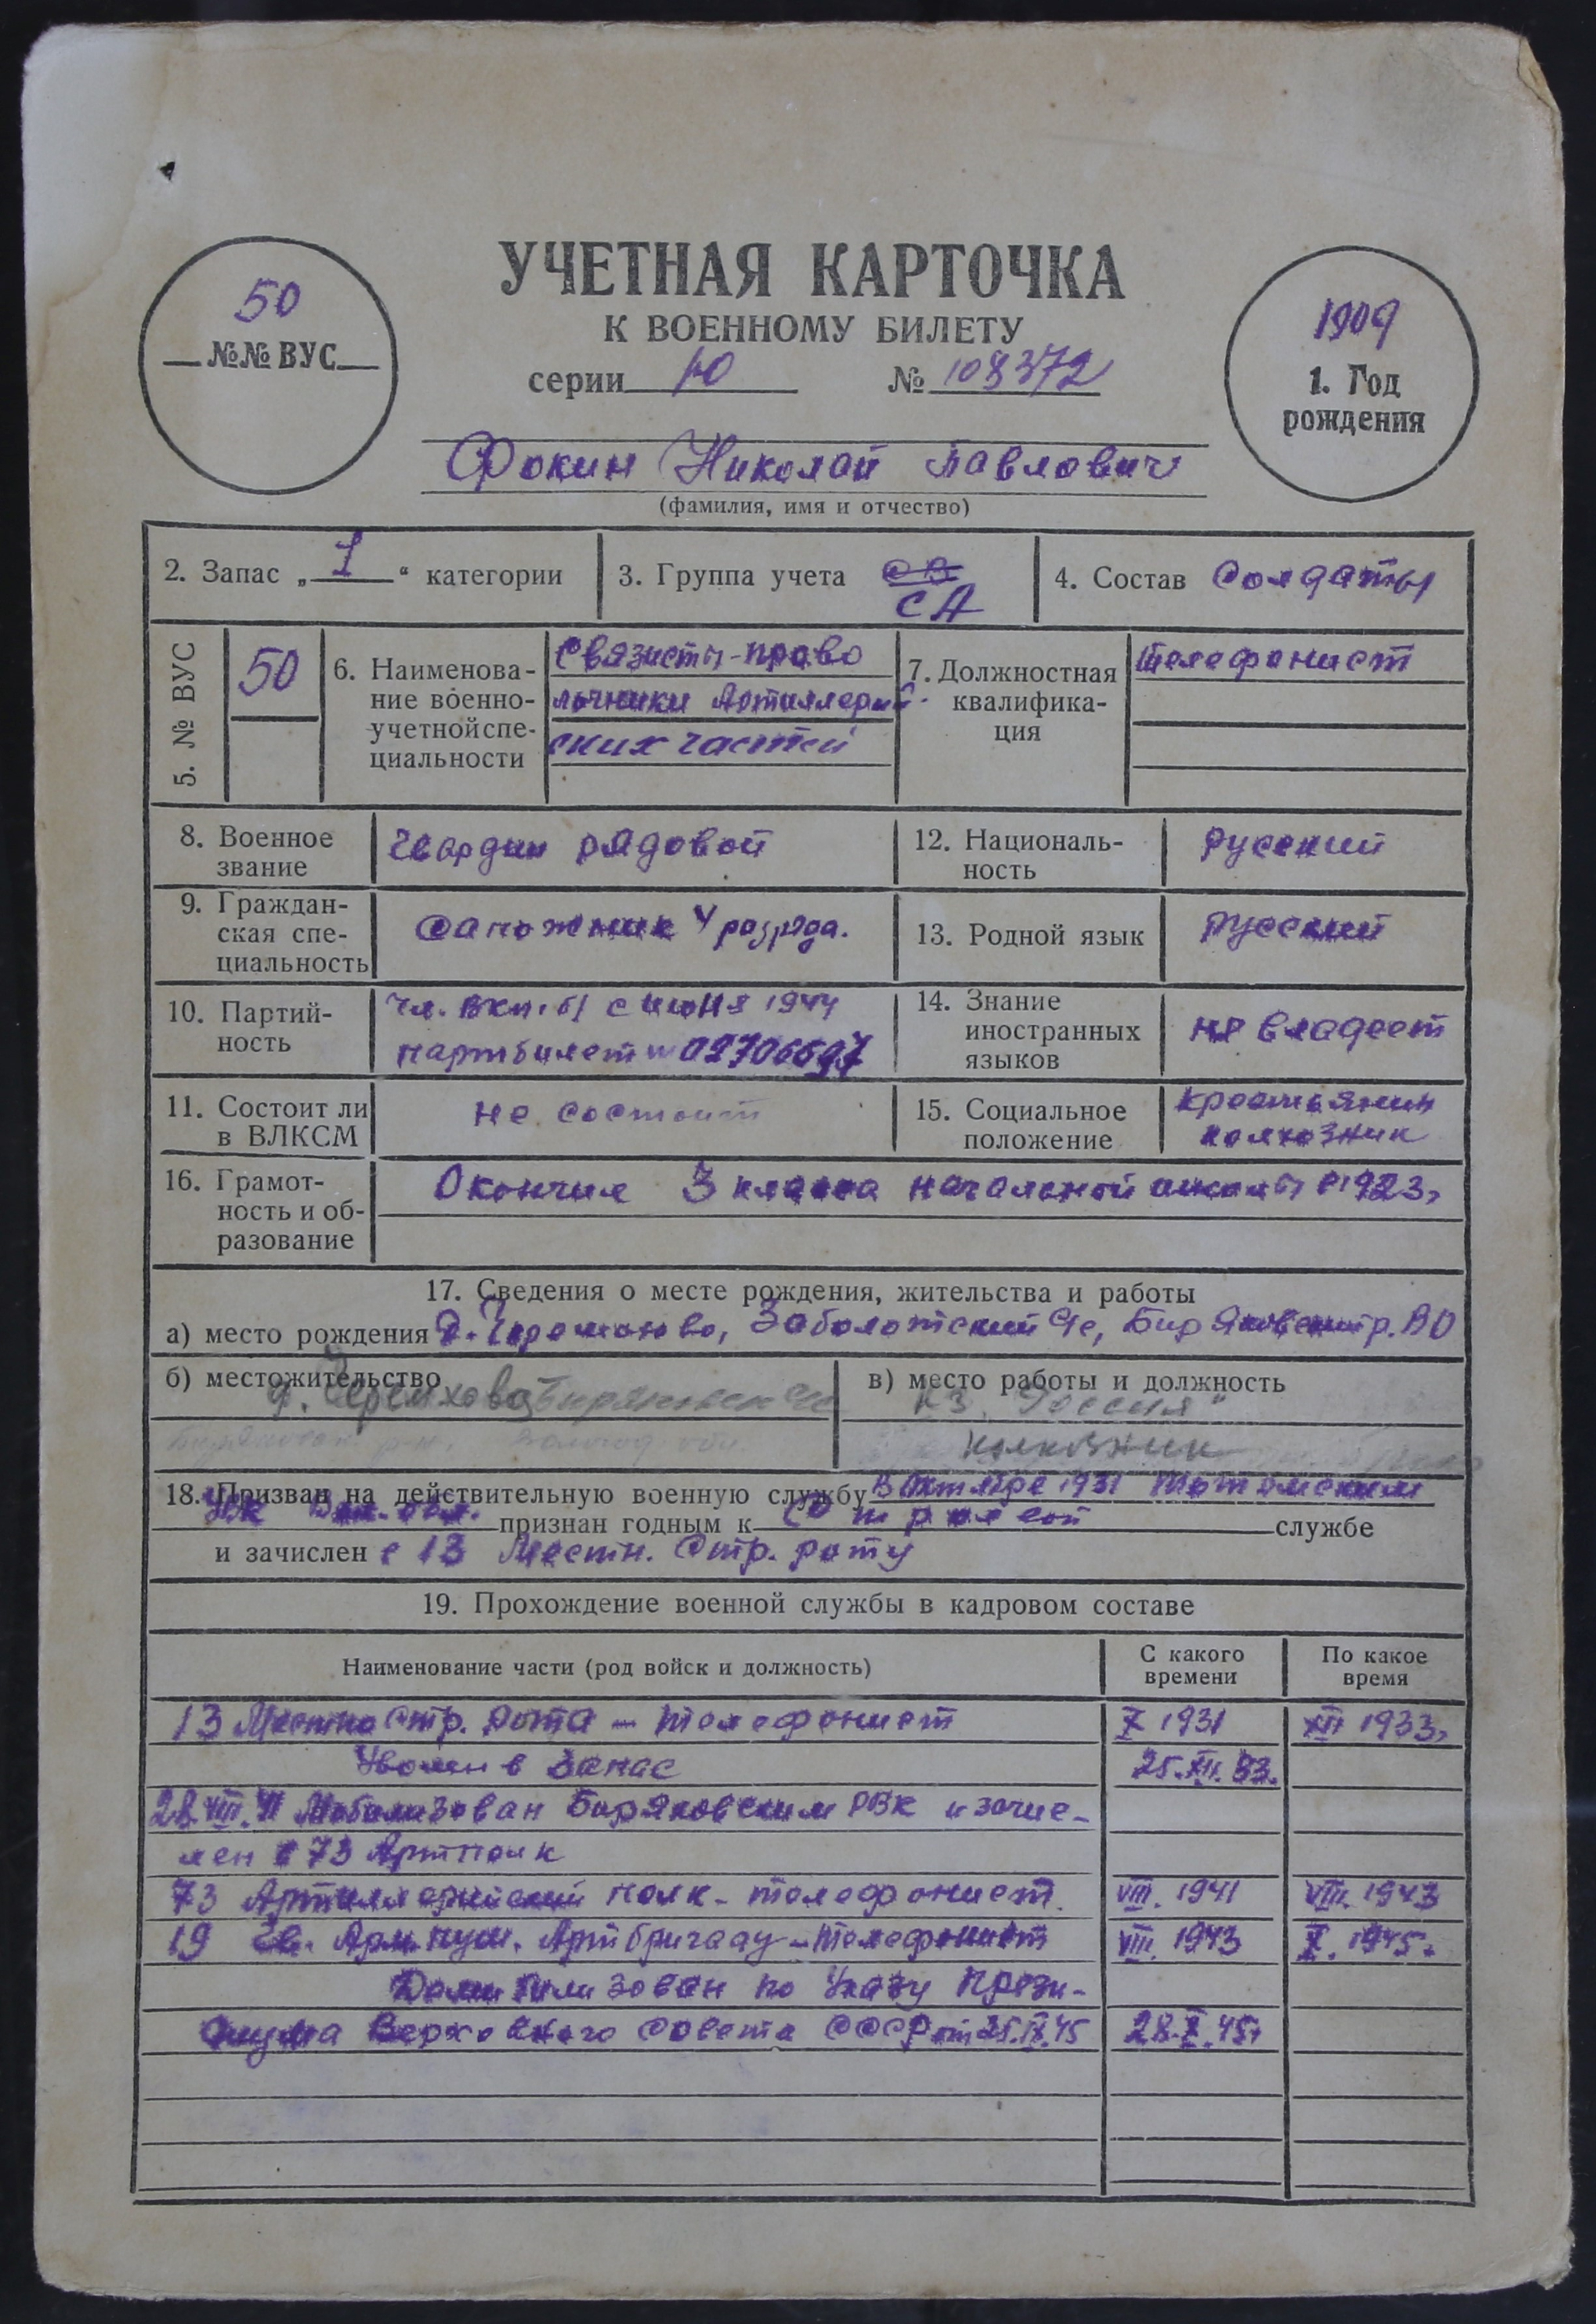 УЧЕТНАЯ КАРТОЧКА
К ВОЕННОМУ БИЛЕТУ
серии Ю № 108372
50
№№ ВУС
1909
1. Год
рождения
Фокин Николай Павлович
(фамилия, имя и отчество)
2. Запас „ 1 “ категории
3. Группа учета СА
4. Состав Солдаты
5. № ВУС
50
6. Наименова-
ние военно-
учетной спе-
циальности
Связисты-прово
лочники Артиллерий-
ских частей
7. Должностная
квалифика-
ция
телефонист
8. Военное
звание
Гвардии рядовой
12. Националь-
ность
русский
9. Граждан-
ская спе-
циальность
Сапожник 4 разряда.
13. Родной язык
русский
10. Партий-
ность
чл. ВКП(б) с июня 1944
партбилет № 02706697
14. Знание
иностранных
языков
не владеет
11. Состоит ли
в ВЛКСМ
не состоит
15. Социальное
положение
крестьянин
колхозник
16. Грамот-
ность и об-
разование
Окончил 3 класса начальной школы в 1923г
17. Сведения о месте рождения, жительства и работы
а) место рождения Д. Черемхово, Заболотский Чс, Биряковск р. ВО
б) местожительство
д. Черемхово
в) место работы и должность
к-з „Россия“
колхозник
18. Призван на действительную военную службу В Октябре 1931 Тотемским
признан годным к строевой службе
и зачислен в 13 Местн. Стр. роту
19. Прохождение военной службы в кадровом составе
Наименование части (род войск и должность)
С какого
времени
По какое
время
13 Местна Стр. Рота - телефонист X 1931 XII 1933г
Уволен в Запас 25.XII.33.
28.VIII.41 Мобилизован Биряковским РВК и зачис-
лен в 73 Артполк
73 Артиллерийский полк - телефонист. VIII. 1941 VIII. 1943
19 Гв. Арм. пуш. Артбригаду - телефонист VIII. 1943 X. 1945г
Демобилизован по Указу Прези-
диума Верховного Совета СССР от 25.IX.45 28.X.45г